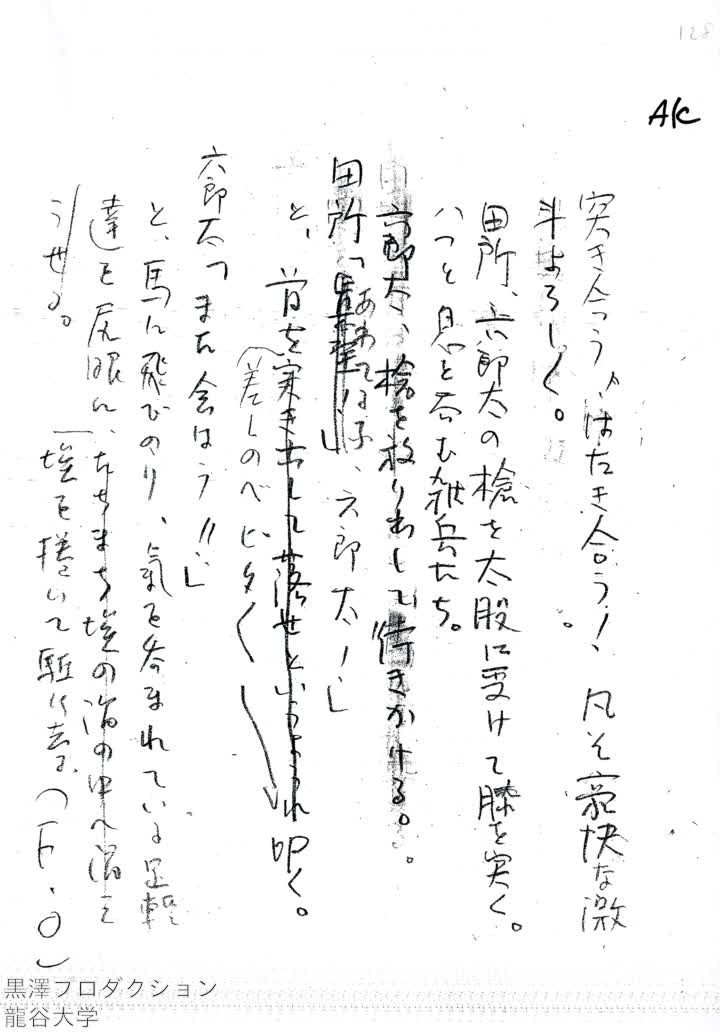 128
AK
突き合う、はたき合う！、凡そ豪快な激
斗よろしく。
田所、六郎太の槍を太股に受けて膝を突く。
ハッと息を呑む雑兵たち。
六郎太、槍を放り出して行きかける。
田所「待て待て、六郎太！」
と、首を突き出して落せというように叩く。
（差しのべピタ〱
六郎太「また会はう！！」
と、馬に飛びのり、氣を呑まれている足軽
達を尻眼に、たちまち埃の渦の中へ消え
うせる。
埃を捲いて駈け去る（F・O）
黒澤プロダクション
龍谷大学